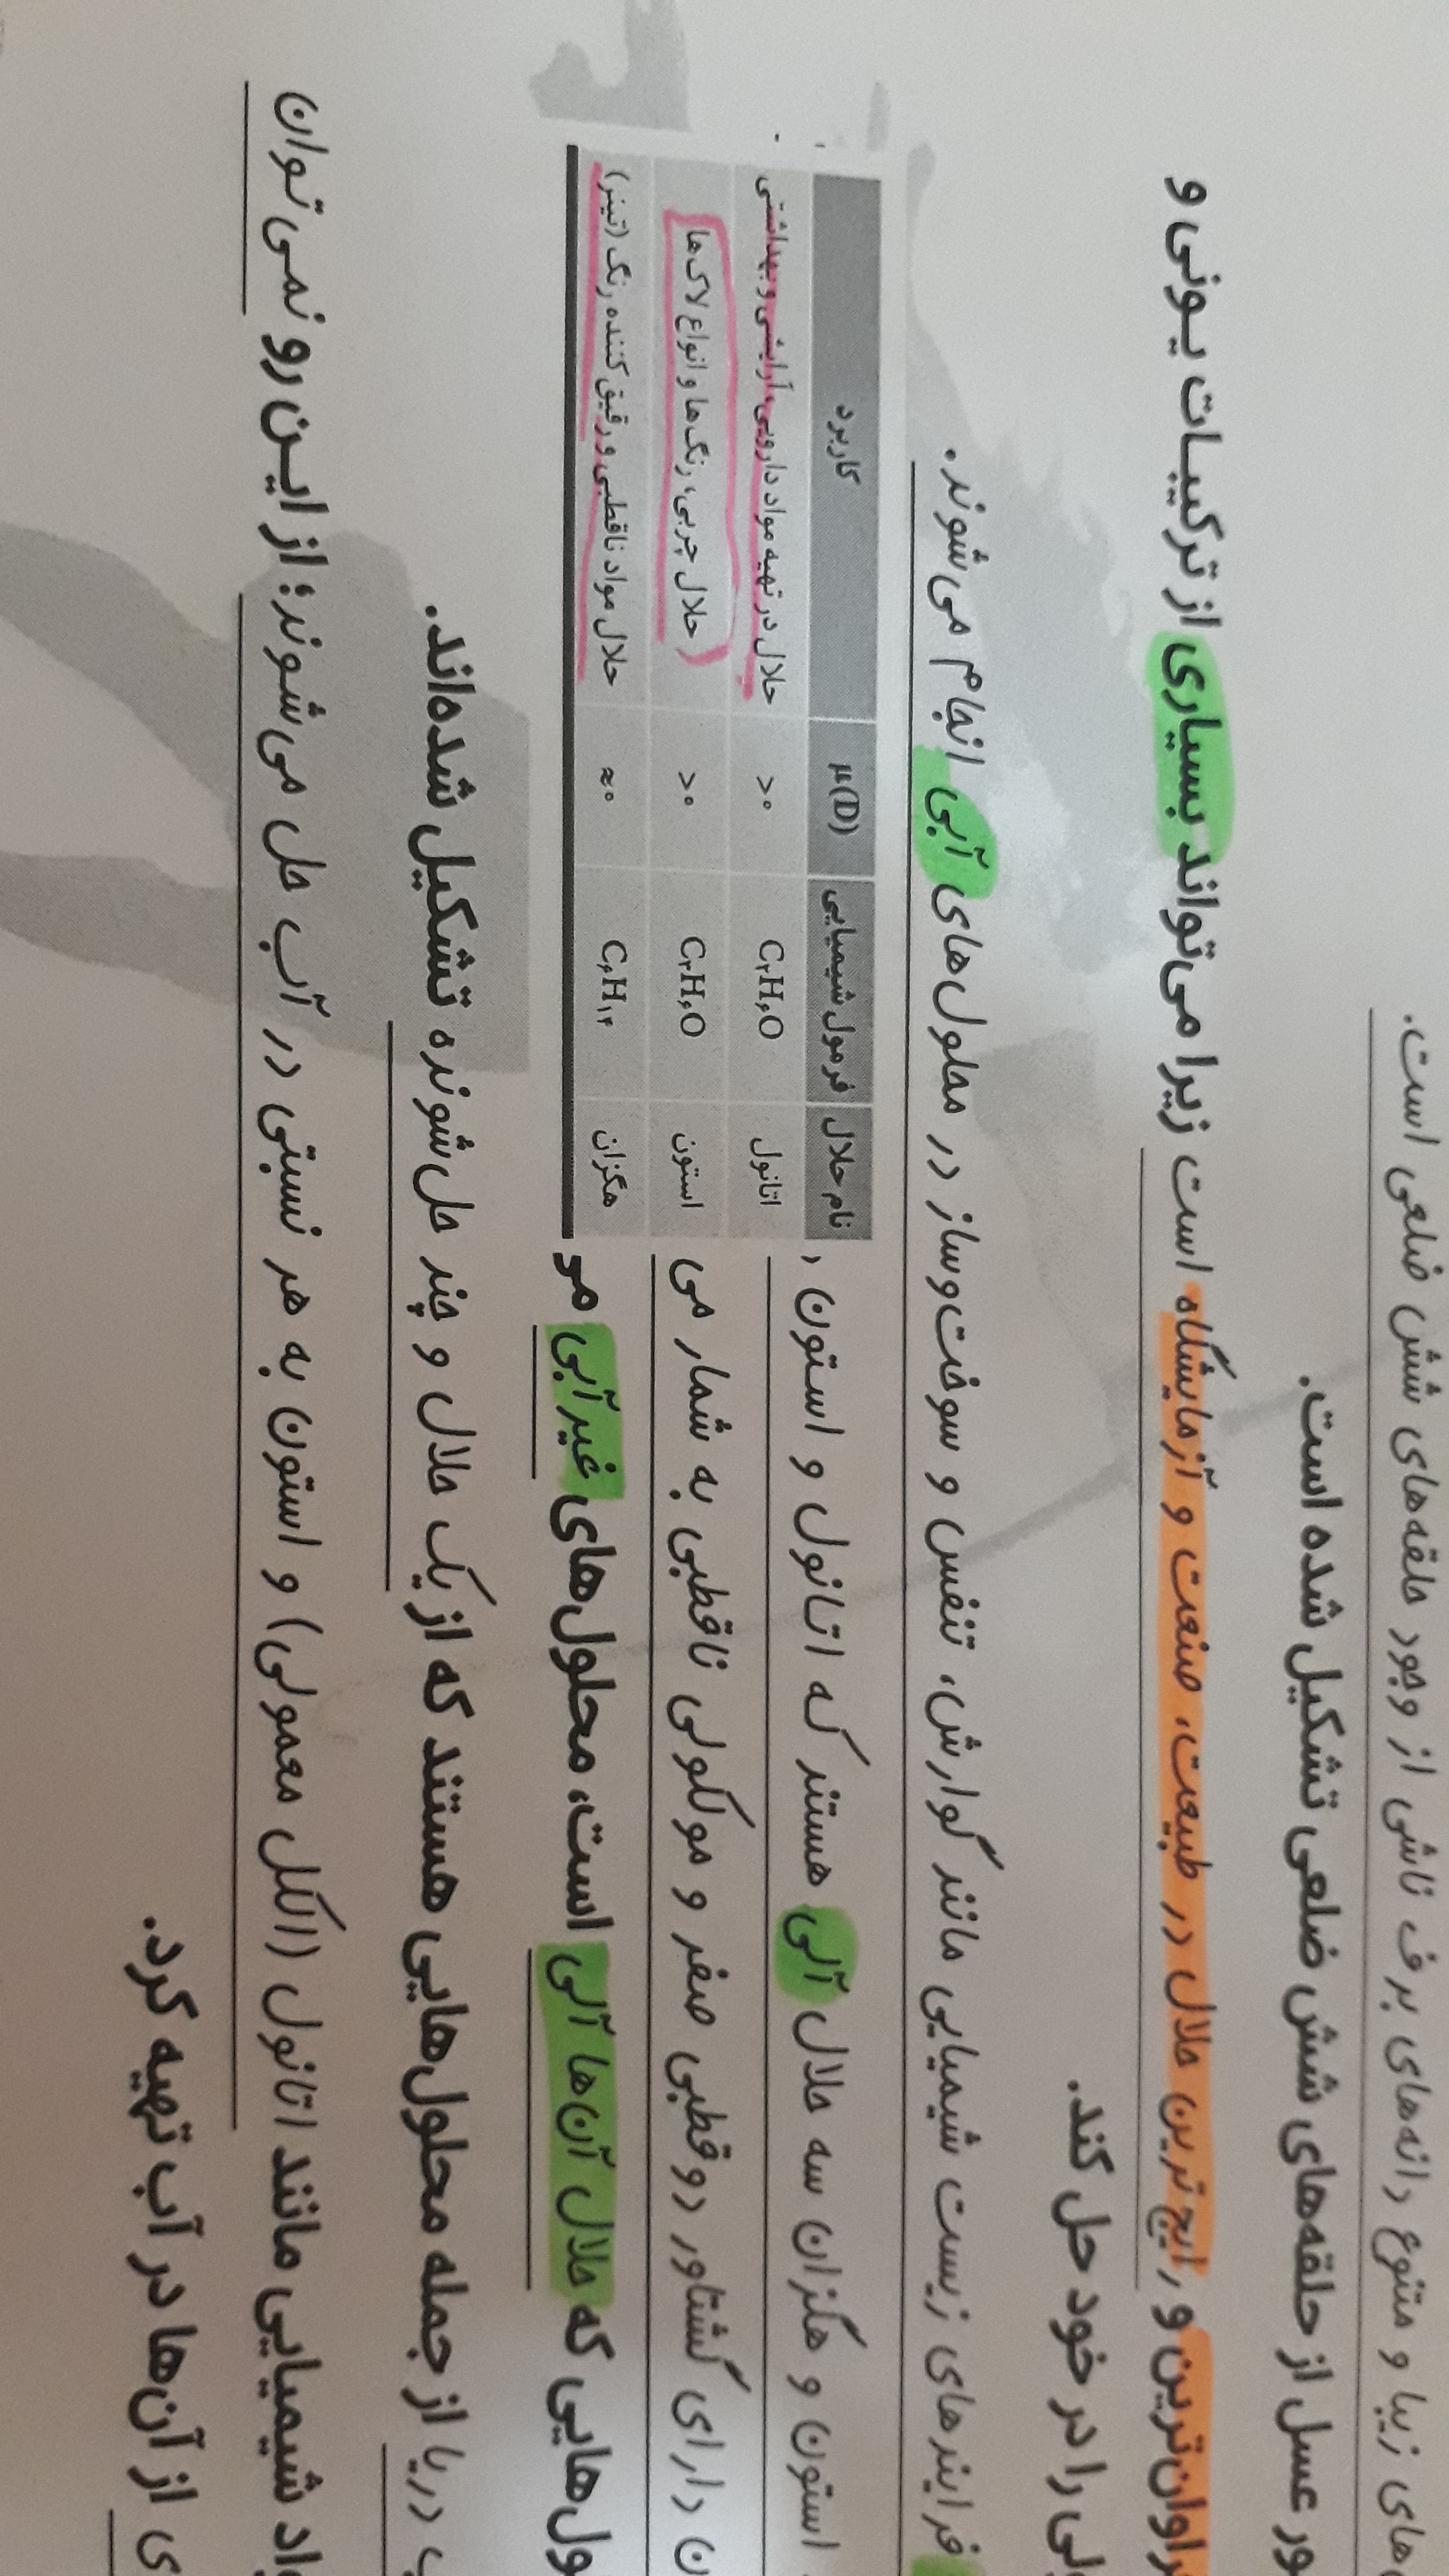 های زیبا و متنوع دانه‌های برف ناشی از وجود حلقه‌های شش ضلعی است.
ور عسل از حلقه‌های شش ضلعی تشکیل شده است.
راوان‌ترین و رایج‌ترین حلال در طبیعت، صنعت و آزمایشگاه است زیرا می‌تواند بسیاری از ترکیبات یونی و
لی را در خود حل کند.
فرایندهای زیست شیمیایی مانند گوارش، تنفس و سوخت‌وساز در محلول‌های آبی انجام می‌شوند.
استون و هگزان سه حلال آلی هستند که اتانول و استون
ن دارای گشتاور دوقطبی صفر و مولکولی ناقطبی به شمار می
ول‌هایی که حلال آن‌ها آلی است، محلول‌های غیرآبی
نام حلال فرمول شیمیایی μ(D) کاربرد
اتانول C۲H۶O >۰ حلال در تهیه مواد دارویی، آرایشی و بهداشتی
استون C۳H۶O >۰ حلال چربی، رنگ‌ها و انواع لاک‌ها
هگزان C۶H۱۴ ≈۰ حلال مواد ناقطبی و رقیق کننده رنگ (تینر)
دریا از جمله محلول‌هایی هستند که از یک حلال و چند حل‌شونده تشکیل شده‌اند.
اد شیمیایی مانند اتانول (الکل معمولی) و استون به هر نسبتی در آب حل می‌شوند؛ از این رو نمی‌توان
ی از آن‌ها در آب تهیه کرد.